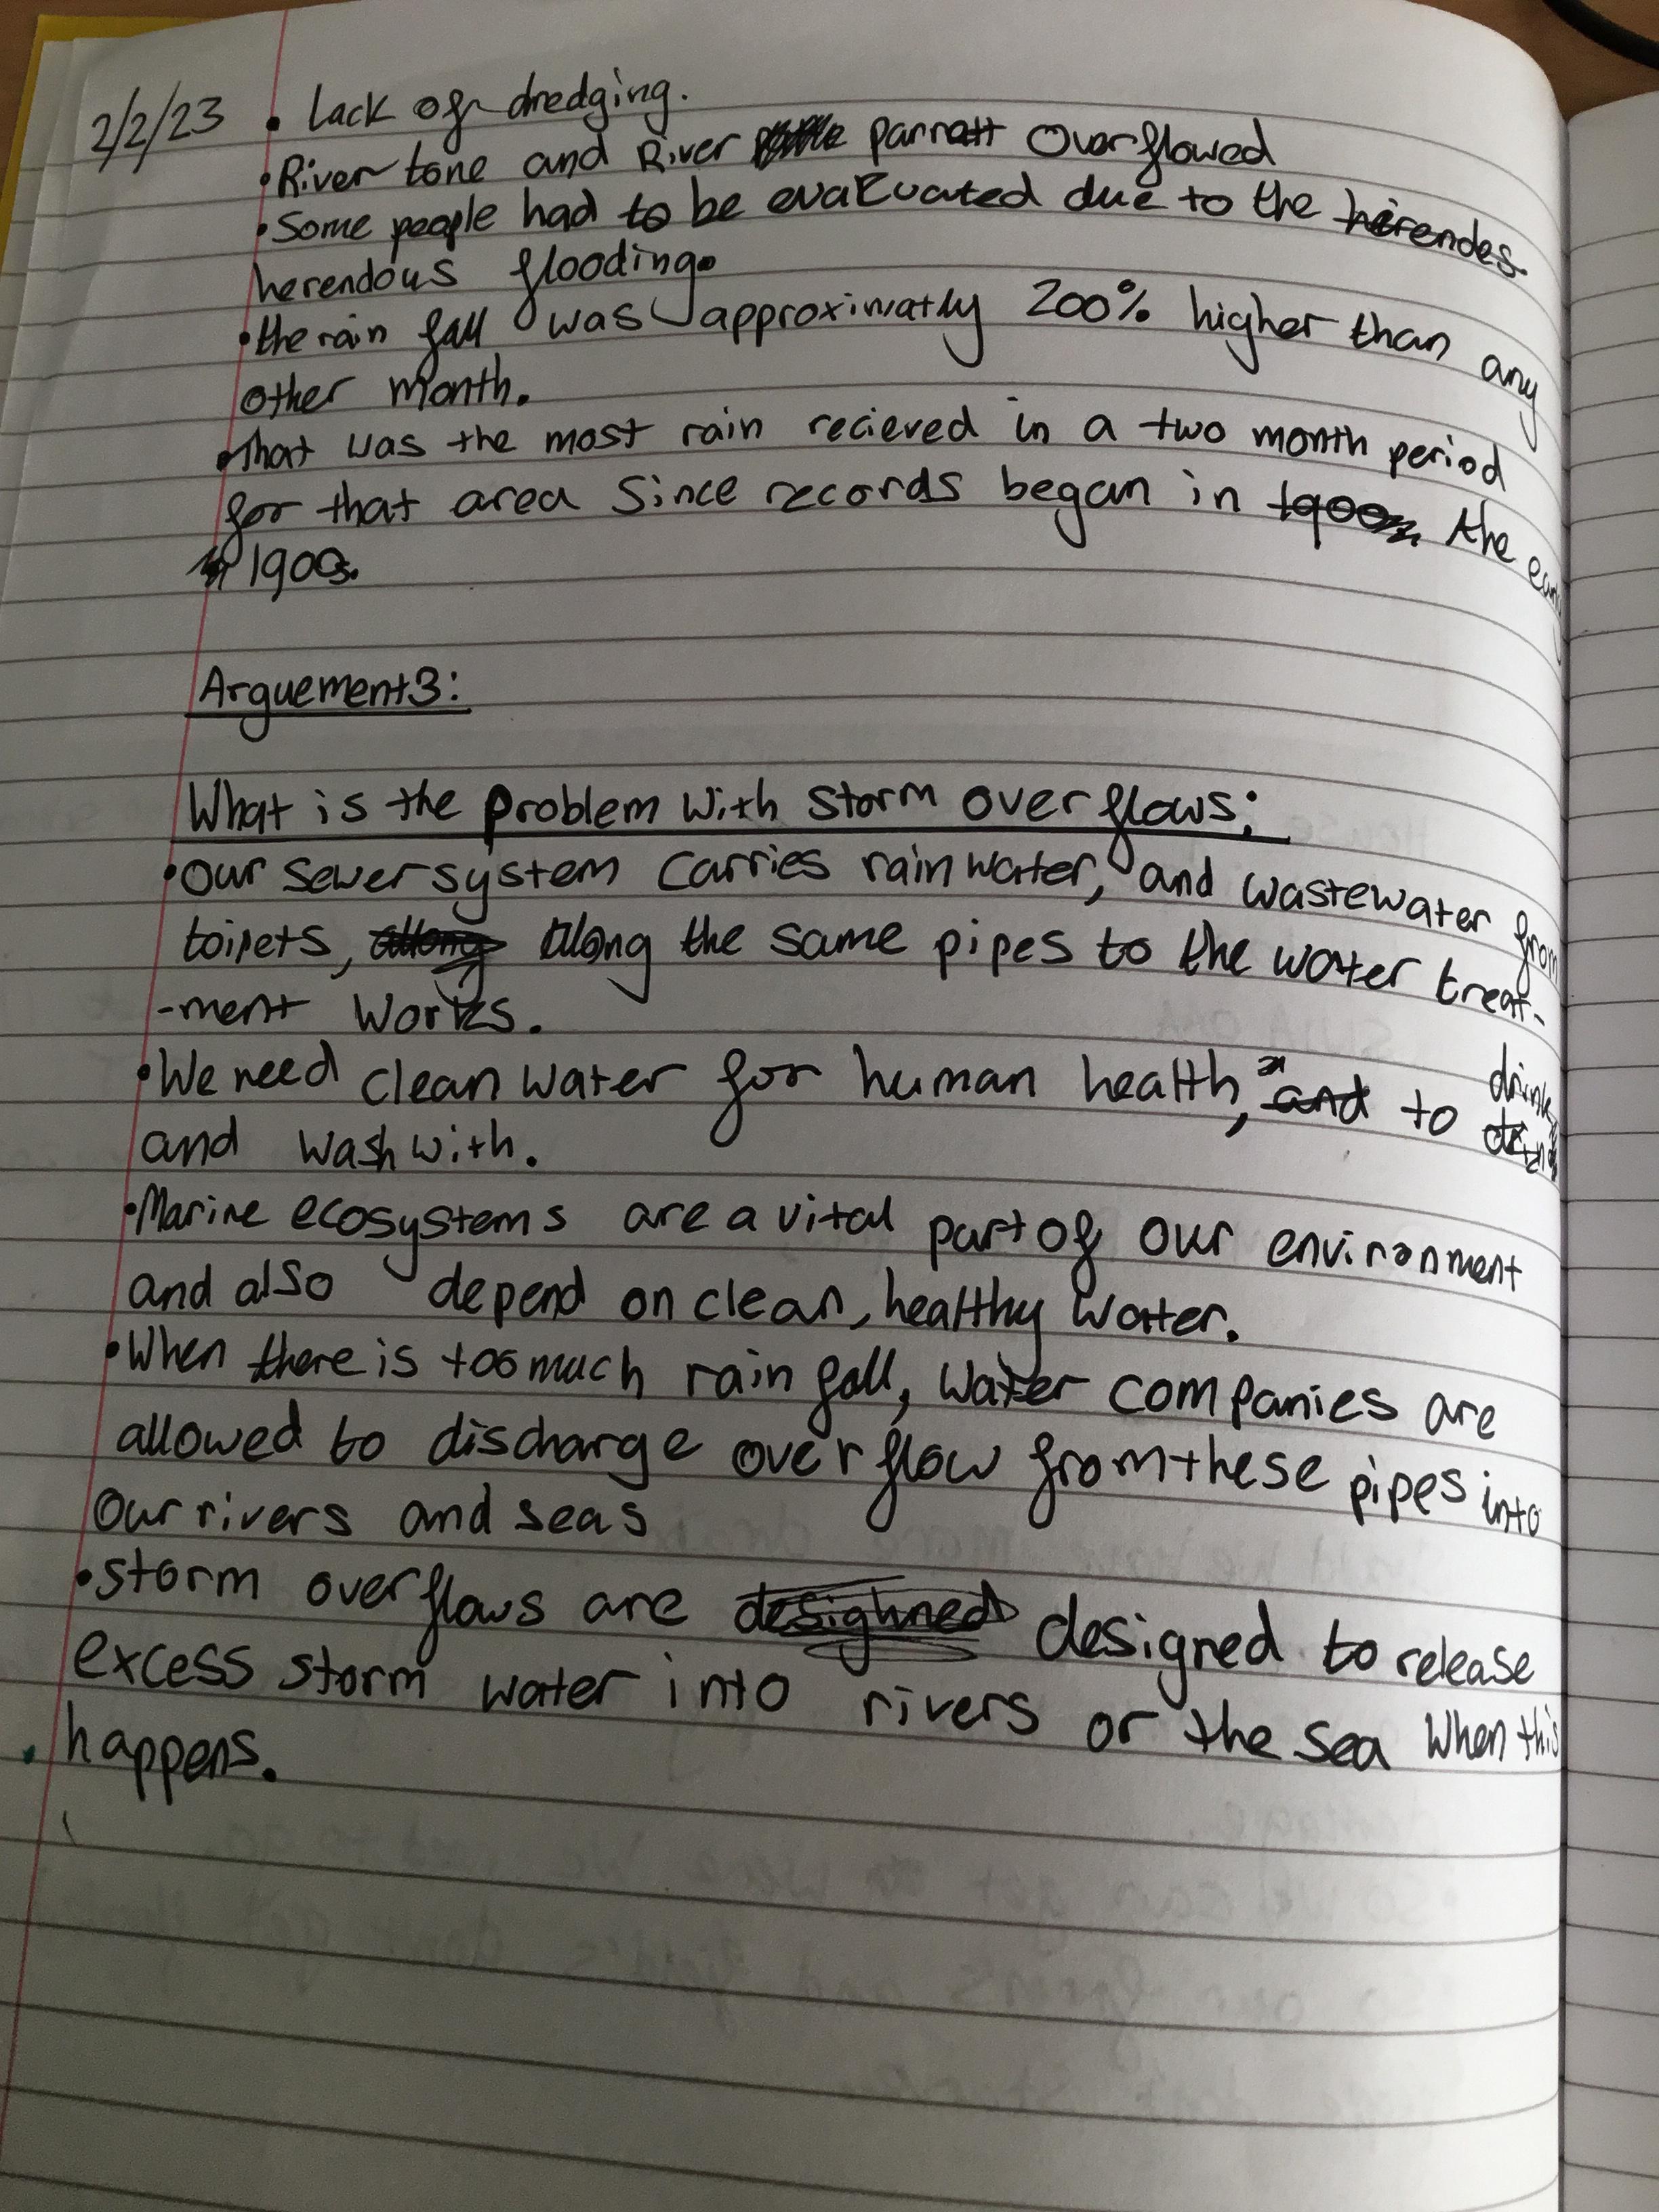 2/2/23 • Lack of dredging.
• River tone and River parratt Overflowed
• Some people had to be evacuated due to the herendes
herendous flooding.
• the rain fall was approximatly 200% higher than any
other month.
• that was the most rain recieved in a two month period
for that area since records began in 1900 the early
1900s.
Arguement 3:
What is the problem with storm overflows:
• Our sewer system carries rainwater, and wastewater from
toilets, along the same pipes to the water treat-
-ment works.
• We need clean water for human health, and to drink
and wash with.
• Marine ecosystems are a vital part of our environment
and also depend on clean, healthy water.
• When there is too much rain fall, water companies are
allowed to discharge overflow from these pipes into
our rivers and seas
• storm overflows are desighned designed to release
excess storm water into rivers or the sea when this
happens.